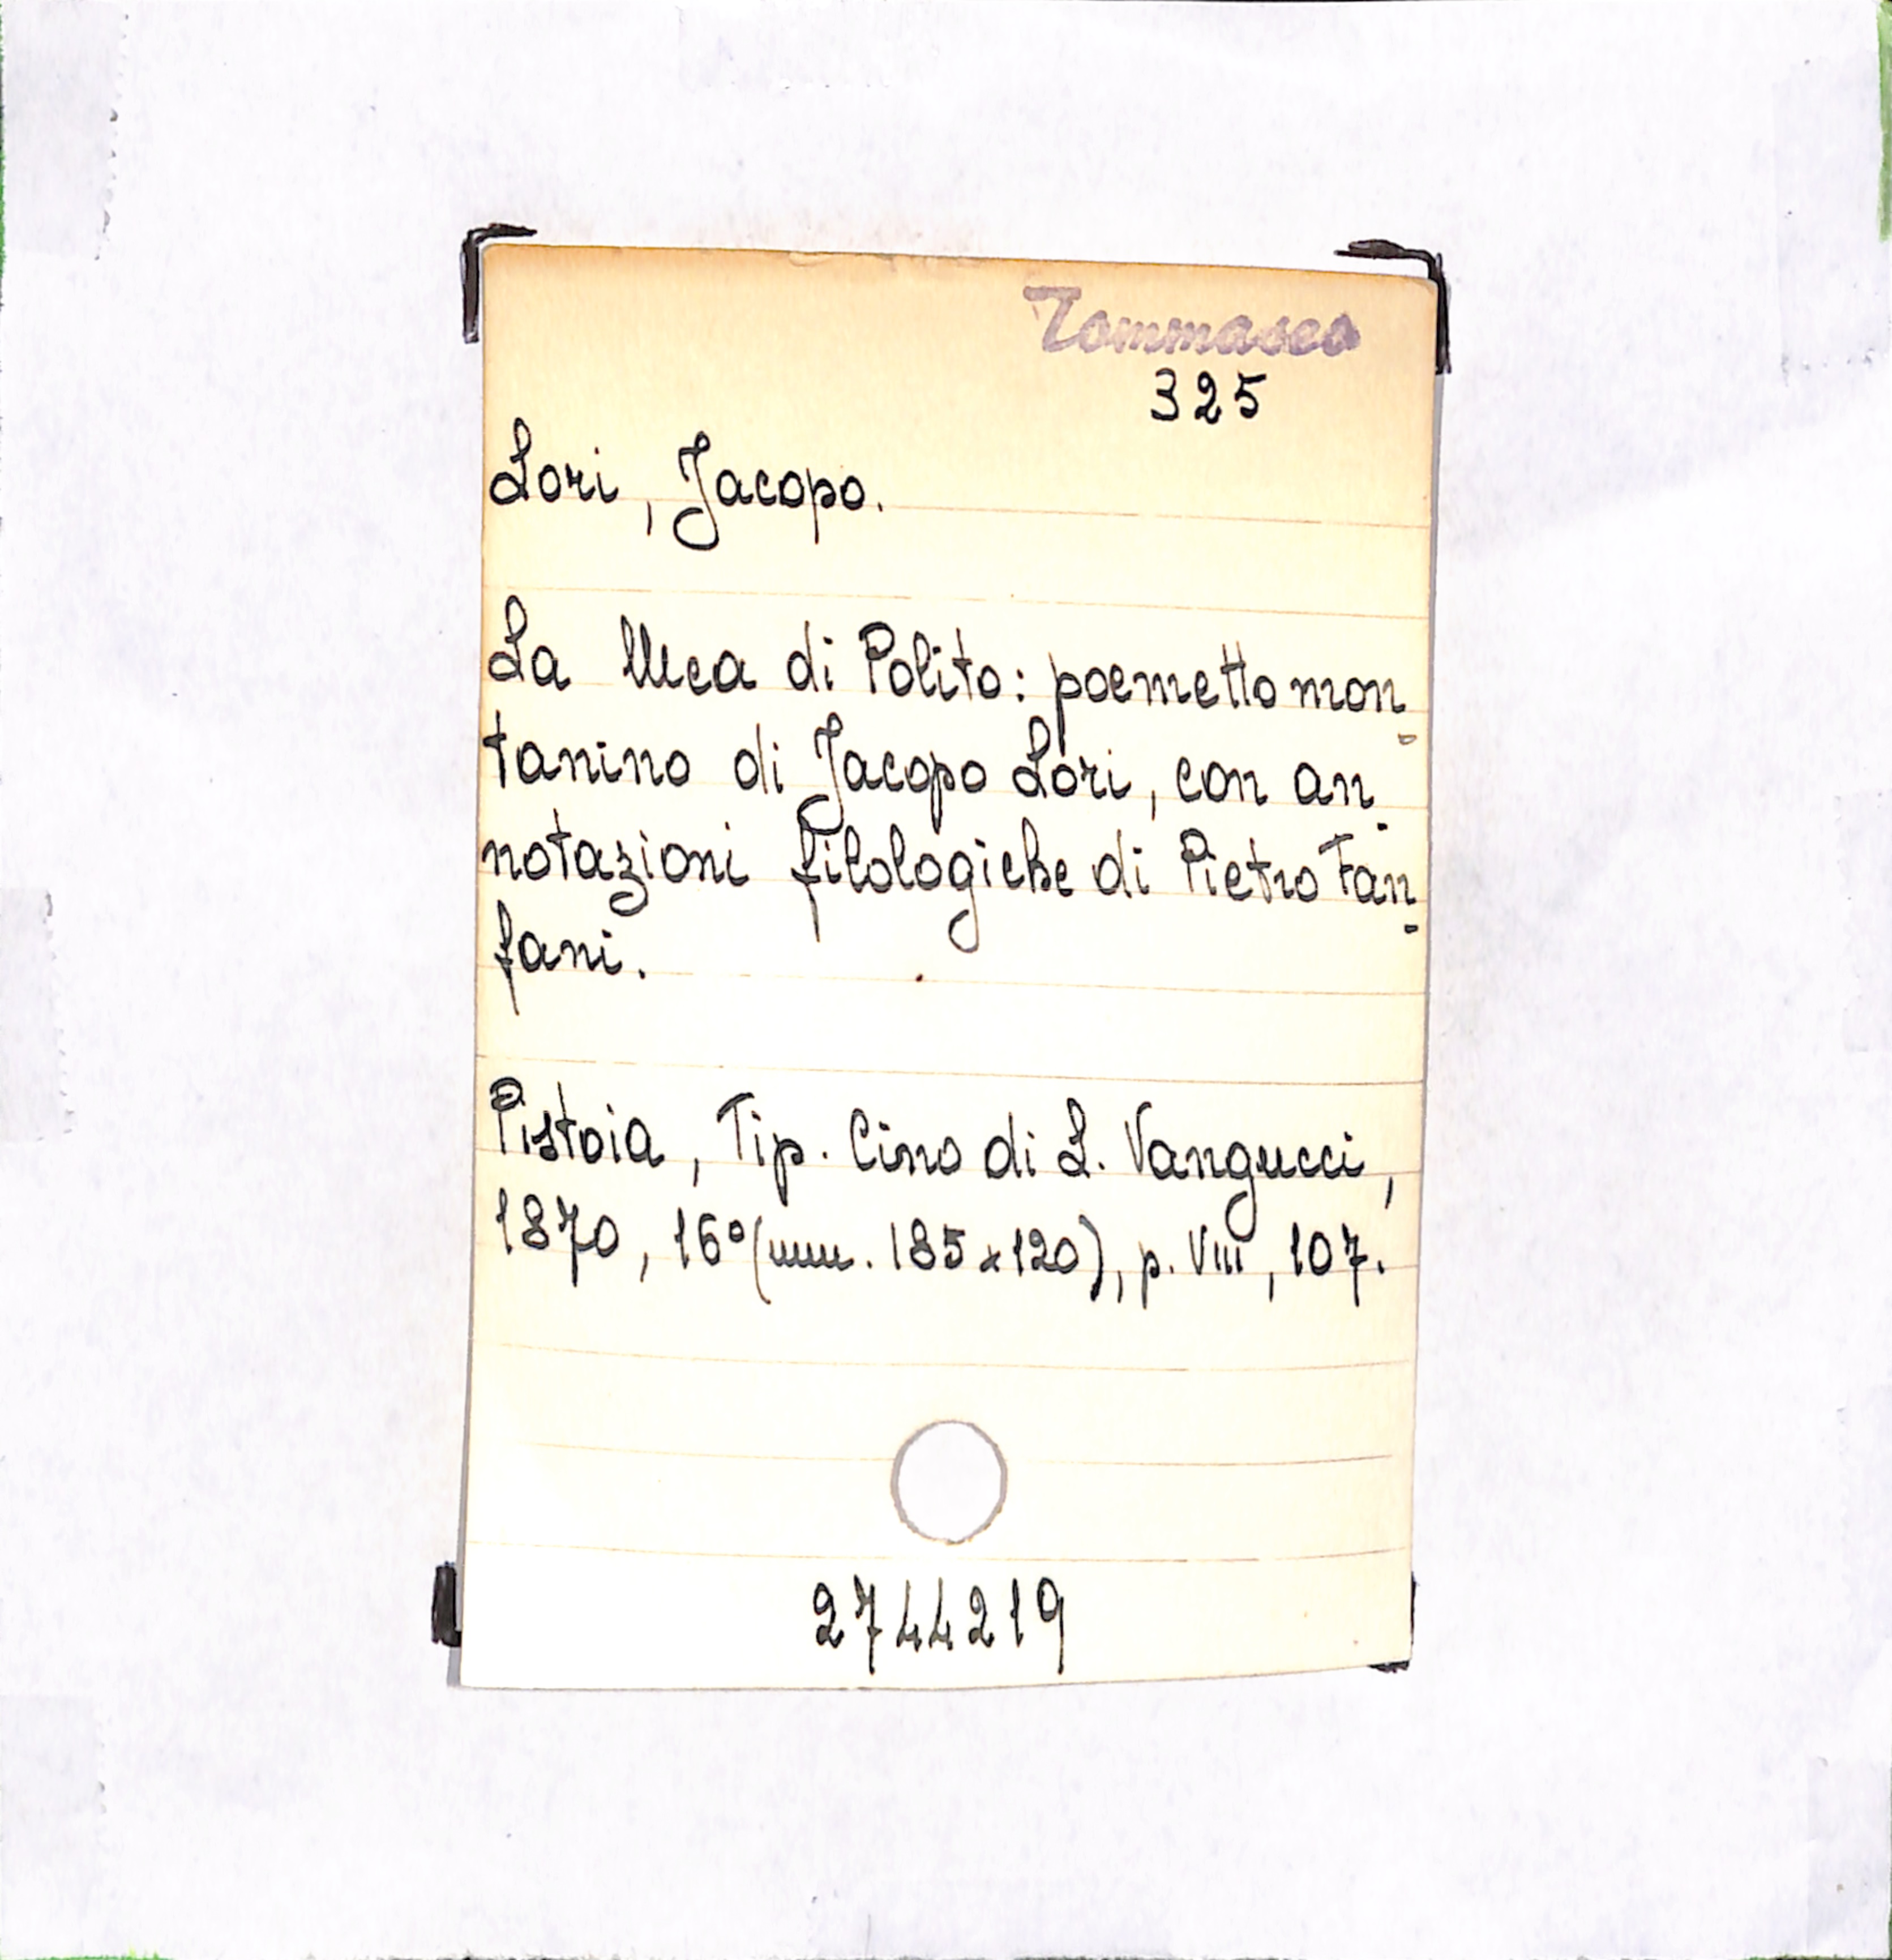 Tommaseo
325
Lori, Jacopo.
La Mea di Polito: poemetto mon-
tanino di Jacopo Lori, con an-
notazioni filologiche di Pietro Fan-
fani.
Pistoia, Tip. Cino di L. Vangucci,
1870, 16°(mm. 185x120), p. VIII, 107.
2744219